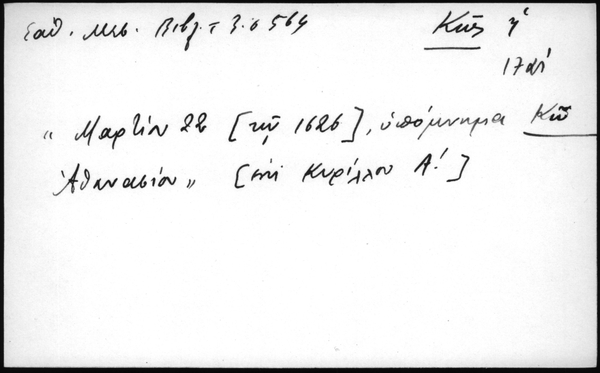 Σαθ. Μεσ. Βιβλ. τ. 3. σ 564 Κῶς ή
17 αἰ
"Μαρτίου 22 [τῷ 1626], ὑπόμνημα Κῶ
Ἀθανασίου" [ἐπὶ Κυρίλλου Α!]